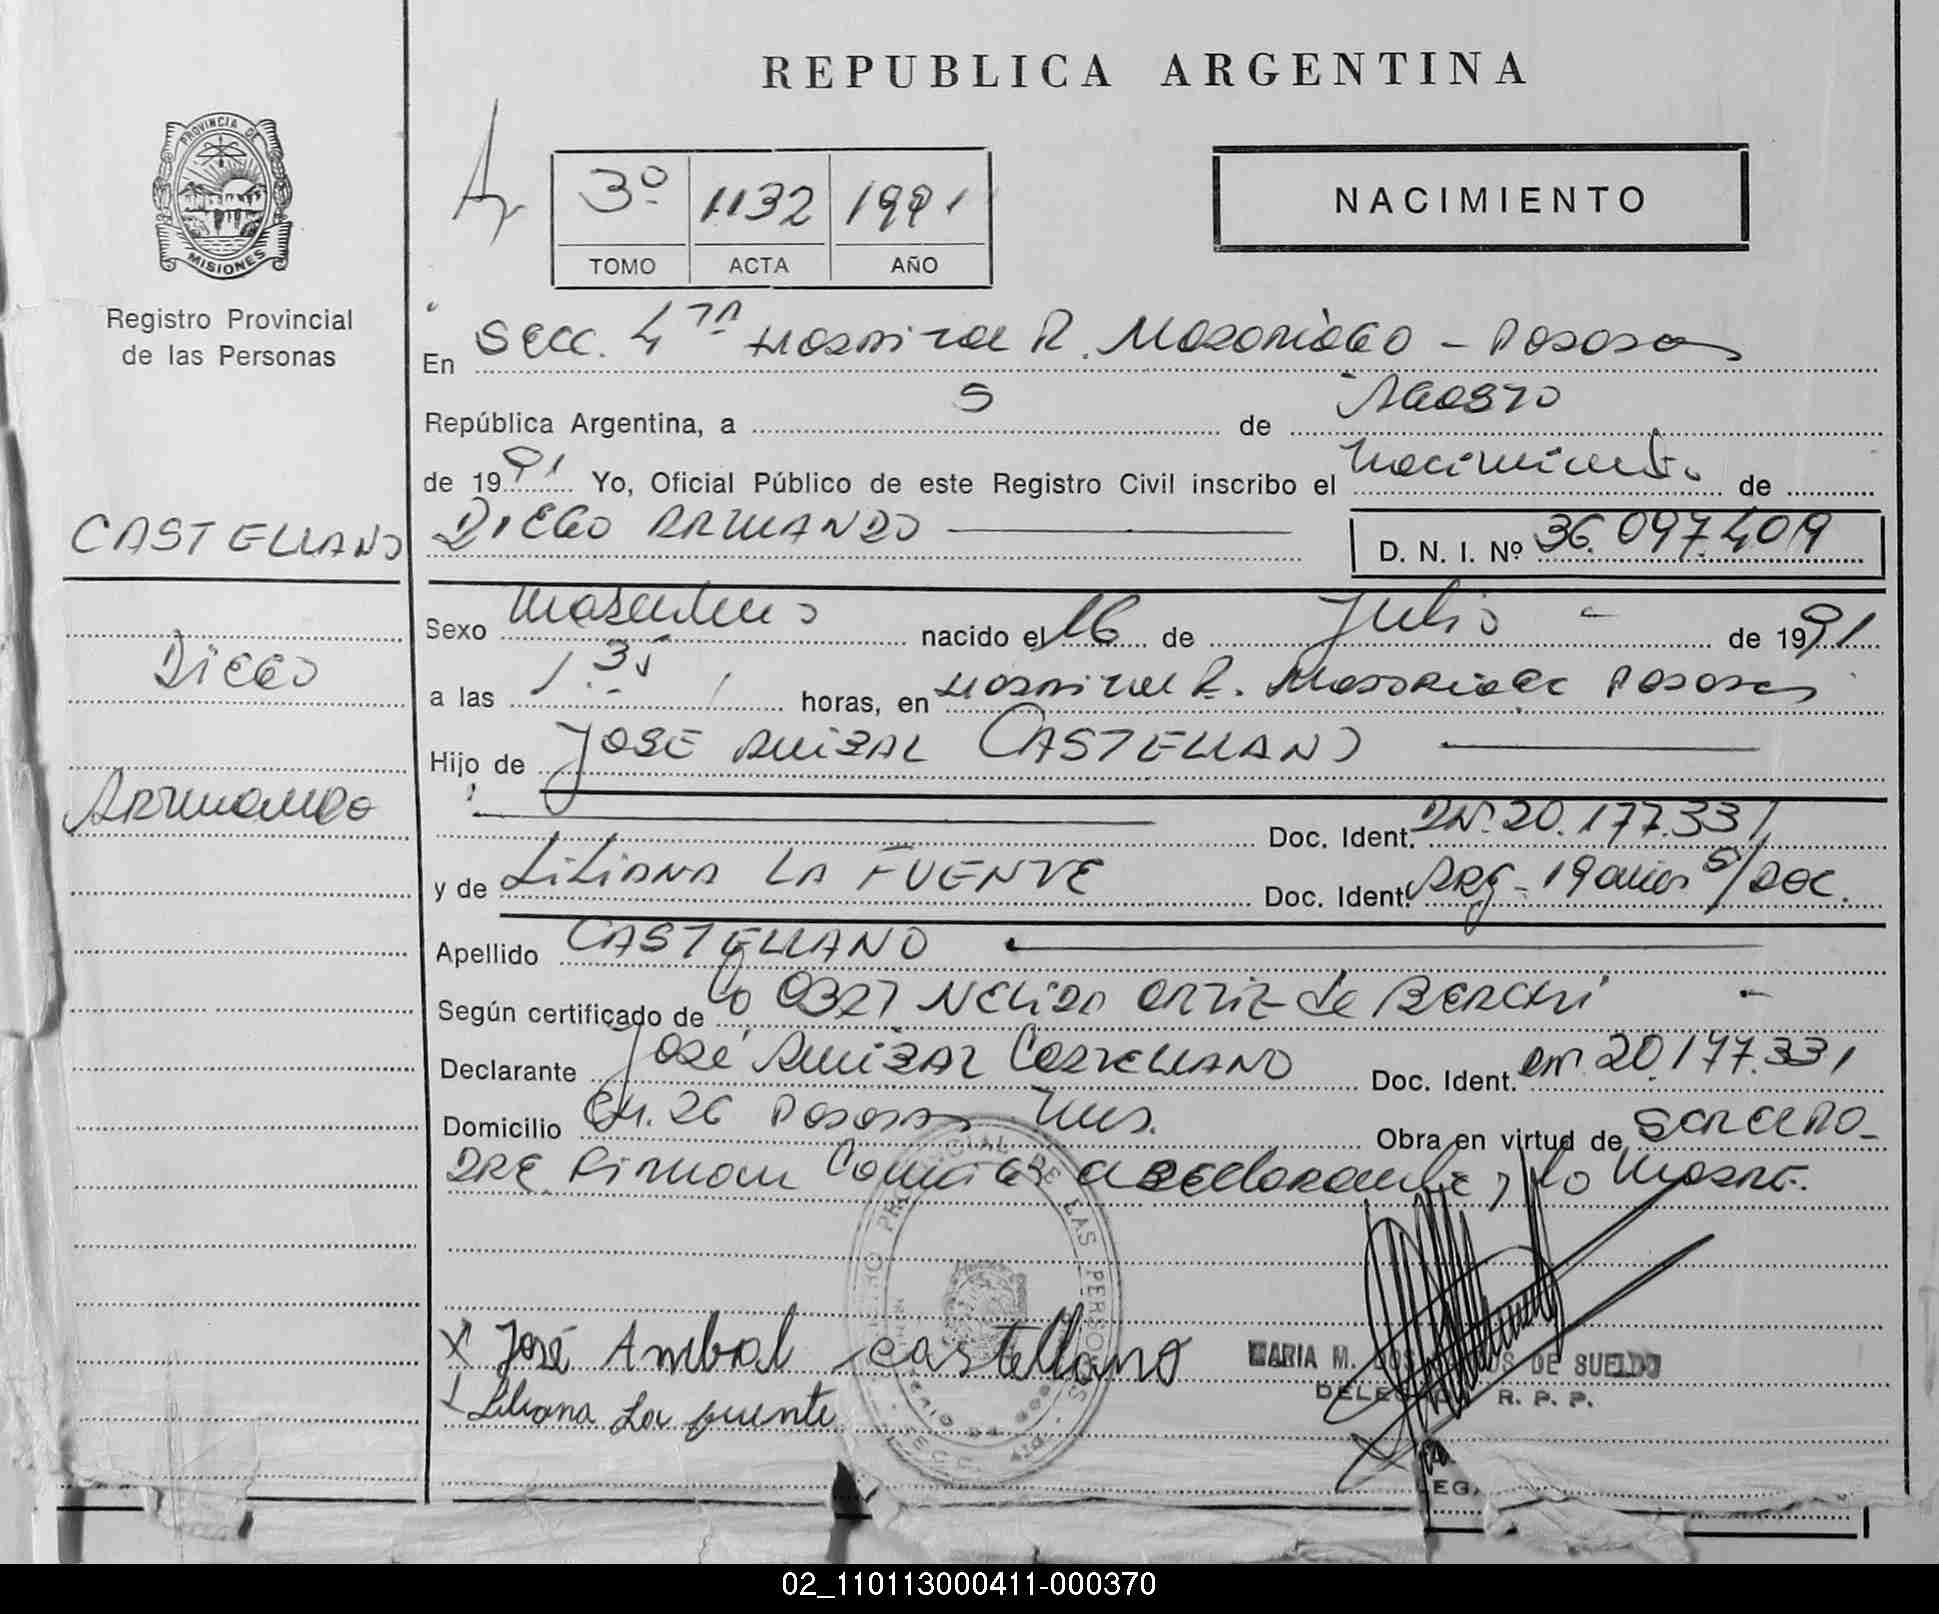 REPUBLICA ARGENTINA
PROVINCIA DE
MISIONES
Registro Provincial
de las Personas
3º 1132 1991
TOMO ACTA AÑO
NACIMIENTO
En Secc. 4ta Hospital R. Madariaga - Posadas
República Argentina, a 5 de Agosto
de 1991 Yo, Oficial Público de este Registro Civil inscribo el Nacimiento de
CASTELLANO
DIEGO ARMANDO
D. N. I. Nº 36.097.409
Diego
Armando
Sexo Masculino nacido el 16 de Julio - de 1991
a las 1.35 horas, en Hospital R. Madariaga Posadas
Hijo de JOSE ANIBAL CASTELLANO
Doc. Ident. DNI. 20.177.331
y de LILIANA LA FUENTE Doc. Ident. Arg - 19 años s/Doc.
Apellido CASTELLANO
Según certificado de 0327 NELIDA ORTIZ de
Declarante José ANIBAL CASTELLANO Doc. Ident. DNI 20.177.331
Domicilio Ch. 26 Posadas Mns. Obra en virtud de SER EL PA-
DRE. Firman el declarante y la MADRE.
REGISTRO PROVINCIAL DE LAS PERSONAS
X José Anibal castellano
MARIA M. DOS SANTOS DE SUELDO
DELEGADA R. P. P.
Liliana La fuente
02_110113000411-000370